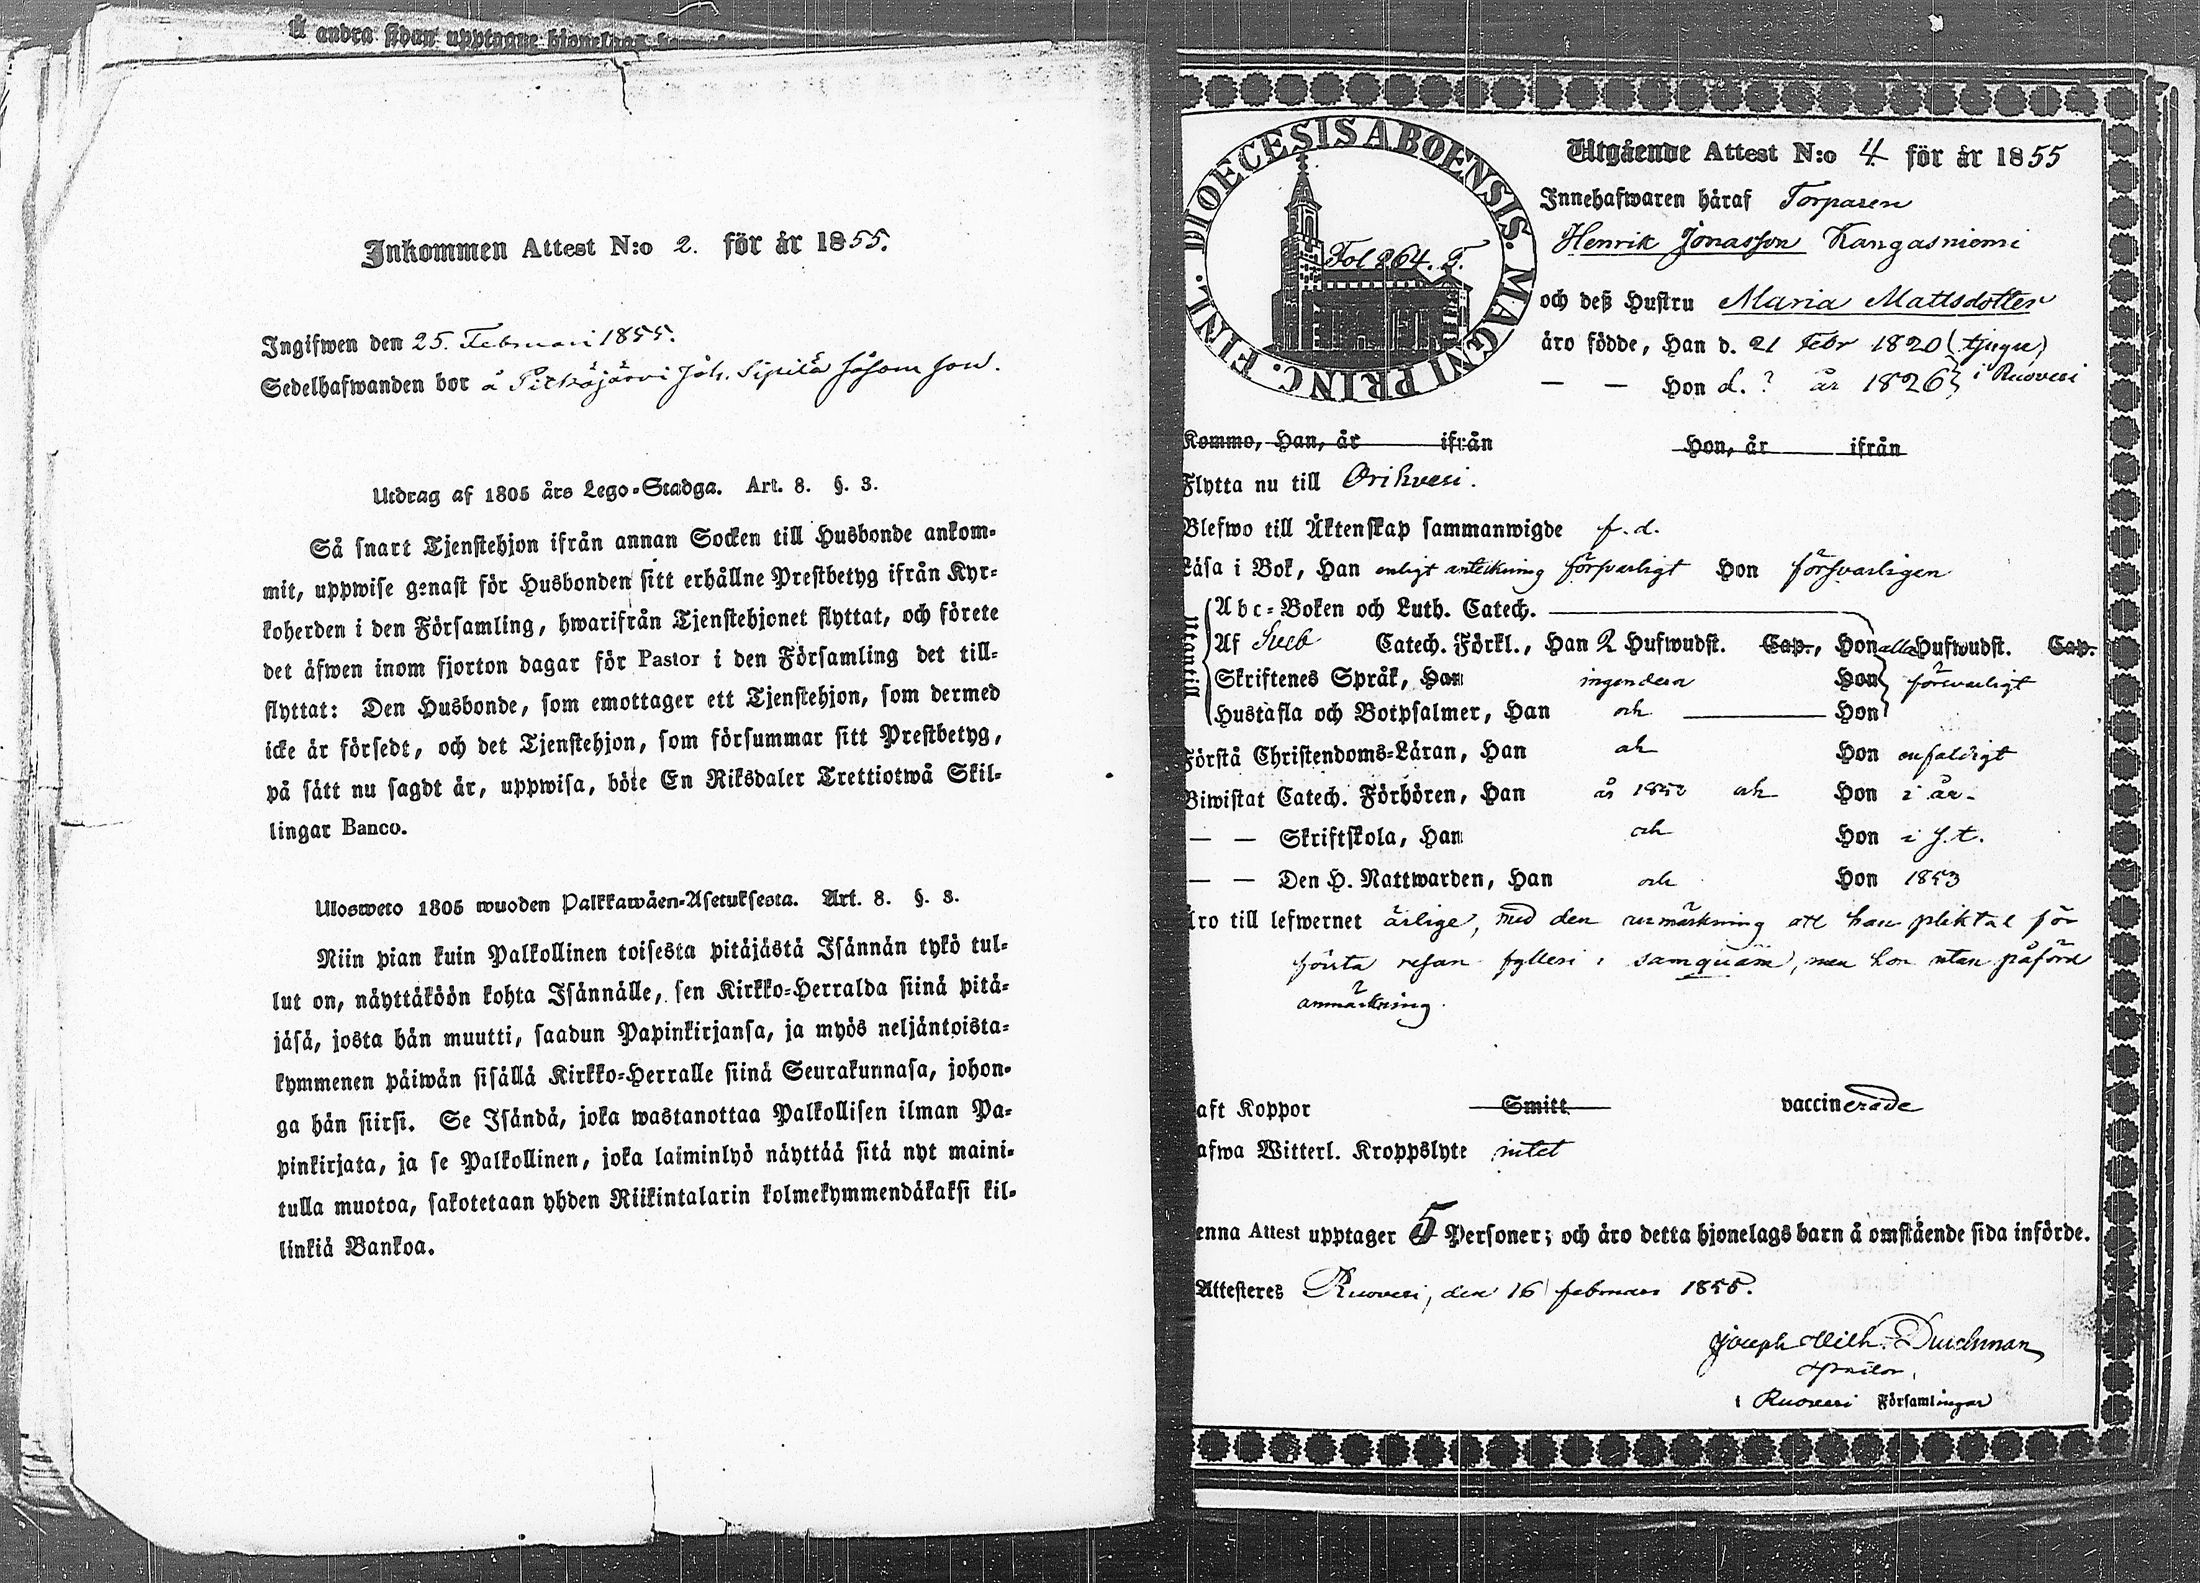 å andra sidan upptagne hjonelags
Inkommen Attest N:o 2. för år 1855.
Ingifwen den 25. Februari 1855.
Sedelhafwanden bor å Pitkäjärvi Joh. Sipilä såsom
Utdrag af 1805 års Lego-Stadga. Art. 8. §. 3.
Så snart Tjenstehjon ifrån annan Socken till Husbonde ankom-
mit, uppwise genast för Husbonden sitt erhållne Prestbetyg ifrån Kyr-
koherden i den Församling, hwarifrån Tjenstehjonet flyttat, och förete
det äfwen inom fjorton dagar för Pastor i den Församling det till-
flyttat: Den Husbonde, som emottager ett Tjenstehjon, som dermed
icke är försedt, och det Tjenstehjon, som försummar sitt Prestbetyg,
på sätt nu sagdt är, uppwisa, böte En Riksdaler Trettiotwå Skil-
lingar Banco.
Ulosweto 1805 wuoden Palkkawäen-Asetuksesta. Art. 8. §. 3.
Niin pian kuin Palkollinen toisesta pitäjästä Isännän tykö tul-
lut on, näyttäköön kohta Isännälle, sen Kirkko-Herralda siinä pitä-
jäsä, josta hän muutti, saadun Papinkirjansa, ja myös neljäntoista-
kymmenen päiwän sisällä Kirkko-Herralle siinä Seurakunnasa, johon-
ga hän siirsi. Se Isändä, joka wastanottaa Palkollisen ilman Pa-
pinkirjata, ja se Palkollinen, joka laiminlyö näyttää sitä nyt maini-
tulla muotoa, sakotetaan yhden Riikintalarin kolmekymmendäkaksi kil-
linkiä Bankoa.
DIOECESIS ABOENSIS. MAGNI PRINC. FINL.
Fol 264. T.
Utgående Attest N:o 4 för år 1855
Innehafwaren häraf Torparen
Henrik Jonasson Kangasniemi
och deß Hustru Maria Mattsdotter
äro födde, Han d. 21 Febr 1820 (tjugu)
— — Hon d. ? år 1826 } i Ruovesi
Kommo, Han, år ifrån Hon, år ifrån
Flytta nu till Orihvesi.
Blefwo till Äktenskap sammanwigde f. d.
Läsa i Bok, Han enligt anteckning försvarligt Hon försvarligen
Utantill
Abc-Boken och Luth. Catech.
Af Sveb Catech. Förkl., Han 2 Hufwudst. Cap., Hon alla Hufwudst. Cap.
Skriftenes Språk, Han ingendera Hon försvarligt
Hustafla och Botpsalmer, Han och Hon
Förstå Christendoms-Läran, Han och Hon enfaldigt
Biwistat Catech. Förhören, Han år 1852 och Hon i år
— — Skriftskola, Han och Hon i s. t.
— — Den H. Nattwarden, Han och Hon 1853
äro till lefwernet ärlige, med den anmärkning att han pliktat för
första resan fylleri i samquäm, men hon utan påförd
anmärkning.
aft Koppor Smitt vaccinerade
afwa Witterl. Kroppslyte intet
enna Attest upptager 5 Personer; och äro detta hjonelags barn å omstående sida införde.
Attesteres Ruovesi, den 16 februari 1855.
Joseph Wilh.
i Ruovesi Församlingar